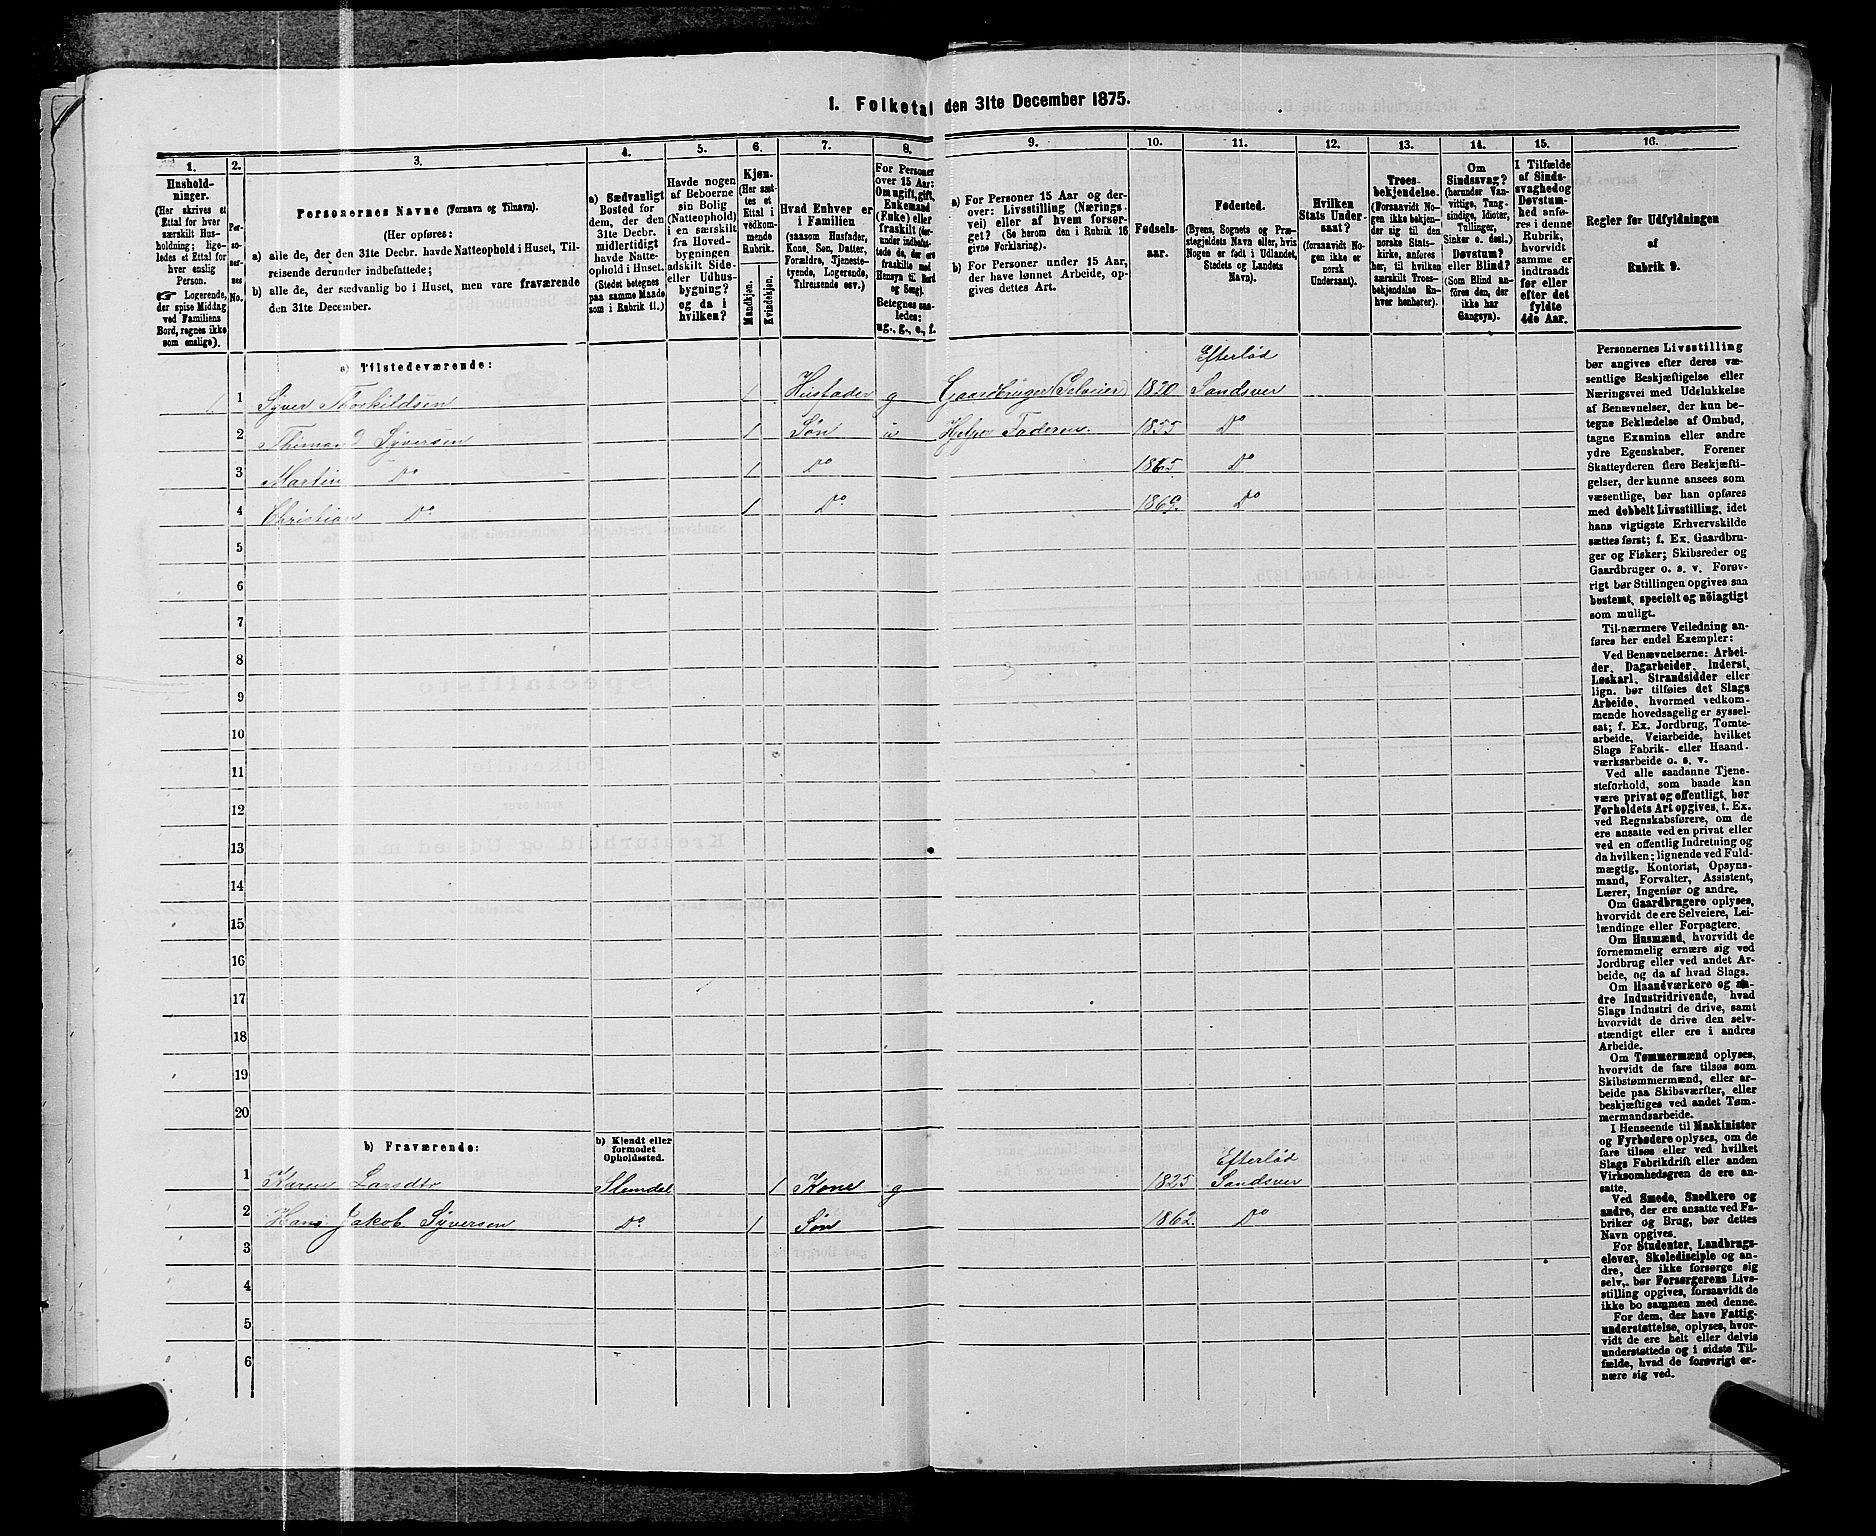 1. Folketal den 31te December 1875.
1.
2.
3.
4.
5.
6.
7.
8.
9.
10.
11.
12.
13.
14.
15.
16.
Hushold-
ninger.
(Her skrives et
Ettal for hver
særskilt Hus-
holdning; lige-
ledes et Ettal for
hver enslig
Person.
☞ Logerende,
der spise Middag
ved Familiens
Bord, regnes ikke
som enslige).
Per-
so-
ner-
nes
No.
Personernes Navne (Fornavn og Tilnavn).
(Her opføres:
a) alle de, der den 31te Decbr. havde Natteophold i Huset, Til-
reisende derunder indbefattede;
b) alle de, der sædvanlig bo i Huset, men vare fraværende
den 31te December.
a) Sædvanligt
Bosted for
dem, der den
31te Decbr.
midlertidigt
havde Natte-
ophold i Huset.
(Stedet betegnes
paa samme Maade
som i Rubrik 11.)
Havde nogen
af Beboerne
sin Bolig
(Natteophold)
i en særskilt
fra Hoved-
bygningen
adskilt Side-
eller Udhus-
bygning?
og da i
hvilken?
Kjøn.
(Her sæt-
tes et
Ettal i
vedkom-
mende
Rubrik.
Mandkjøn.
Kvindekjøn.
Hvad Enhver er
i Familien
(saasom Husfader,
Kone, Søn, Datter,
Forældre, Tjeneste-
tyende, Logerende,
Tilreisende osv.)
For Personer
over 15 Aar:
Om ugift, gift,
Enkemand
(Enke) eller
fraskilt (der-
under indbefat-
tede de, der ere
fraskilte med
Hensyn til Bord
og Seng).
Betegnes saa-
ledes:
ug., g., e., f.
a) For Personer 15 Aar og der-
over: Livsstilling (Nærings-
vei) eller af hvem forsør-
get? (Se herom den i Rubrik 16
givne Forklaring).
b) For Personer under 15 Aar,
der have lønnet Arbeide, op-
gives dettes Art.
Fødsels-
aar.
Fødested.
(Byens, Sognets og Præ-
stegjeldets Navn eller, hvis
Nogen er født i Udlandet,
Stedets og Landets
Navn).
Hvilken
Stats Under-
saat?
(forsaavidt No-
gen ikke er
norsk
Undersaat).
Troes-
bekjendelse.
(Forsaavidt No-
gen ikke bekjen-
der sig til den
norske Stats-
kirke, anføres
her, til hvilken
særskilt Troes-
bekjendelse En-
hver henhører).
Om
Sindssvag?
(herunder Van-
vittige, Tung-
sindige, Idioter,
Tullinger,
Sinker o. desl.)
Døvstum?
eller Blind?
(Som Blind an-
føres den, der
ikke har
Gangsyn).
I Tilfælde
af Sinds-
svaghed og
Døvstum-
hed anfø-
res i denne
Rubrik,
hvorvidt
samme er
indtraadt
før eller
efter det
fyldte
4de Aar.
Regler for Udfyldningen
af
Rubrik 9.
a) Tilstedeværende:
Efterlød
1 Syver Thorkildsen 1 Husfader g Gaardbruger (Selveier) 1820 Sandsver
2 Syversen 1 Søn u Hjelper Faderen. 1855 Do
3 Martin Do 1 Do 1865. Do
4 Christian Do. 1 Do. 1869. Do
5
6
7
8
9
10
11
12
13
14
15
16
17
18
19
20
b) Fraværende:
b) Kjendt eller
formodet
Opholdssted.
Efterlød
1 Karen Larsdtr Stemdal 1 Kone g 1825 Sandsver
2 Hans Jakob Syversen Do 1 Søn 1862. Do
3
4
5
6
Personernes Livsstilling
bør angives efter deres væ-
sentlige Beskjæftigelse eller
Næringsvei med Udelukkelse
af Benævnelser, der kun be-
tegne Beklædelse af Ombud,
tagne Examina eller andre
ydre Egenskaber. Forener
Skatteyderen flere Beskjæfti-
gelser, der kunne ansees som
væsentlige, bør han opføres
med dobbelt Livsstilling, idet
hans vigtigste Erhvervskilde
sættes først; f. Ex. Gaardbru-
ger og Fisker; Skibsreder og
Gaardbruger o. s. v. Forøv-
rigt bør Stillingen opgives saa
bestemt, specielt og nöiagtigt
som muligt.
Til nærmere Veiledning an-
føres her endel Exempler:
Ved Benævnelserne: Arbei-
der, Dagarbeider, Inderst,
Løskarl, Strandsidder eller
lign. bør tilføies det Slags
Arbeide, hvormed vedkom-
mende hovedsagelig er syssel-
sat; f. Ex. Jordbrug, Tomte-
arbeide, Veiarbeide, hvilket
Slags Fabrik- eller Haand-
værksarbeide o. s. v.
Ved alle saadanne Tjene-
steforhold, som baade kan
være privat og offentligt, bør
Forholdets Art opgives, t. Ex.
ved Regnskabsførere, om de
ere ansatte ved en privat eller
ved en offentlig Indretning og
da hvilken; lignende ved Fuld-
mægtig, Kontorist, Opsyns-
mand, Forvalter, Assistent,
Lærer, Ingeniør og andre.
Om Gaardbrugere oplyses,
hvorvidt de ere Selveiere, Lei-
lændinge eller Forpagtere.
Om Husmænd, hvorvidt de
fornemmelig ernære sig ved
Jordbrug eller ved andet Ar-
beide, og da af hvad Slags.
Om Haandværkere og an-
dre Industridrivende, hvad
Slags Industri de drive, samt
hvorvidt de drive den selv-
stændigt eller ere i andres
Arbeide.
Om Tømmermænd oplyses,
hvorvidt de fare tilsøs som
Skibstømmermænd, eller ar-
beide paa Skibsværfter, eller
beskjæftiges ved andet Tøm-
mermandsarbeide.
I Henseende til Maskinister
og Fyrbødere oplyses, om de
fare tilsøs eller ved hvilket
Slags Fabrikdrift eller anden
Virksomhedsgren de ere an-
satte.
Ved Smede, Snedkere og
andre, der ere ansatte ved Fa-
briker og Brug, bør dettes
Navn opgives.
For Studenter, Landbrugs-
elever, Skoledisciple og an-
dre, der ikke forsørge sig
selv, bør Forsørgerens Livs-
stilling opgives, forsaavidt de
ikke bo sammen med denne.
For dem, der have Fattig-
understøttelse, oplyses, hvor-
vidt de ere helt eller delvis
understøttede og i sidste Til-
fælde, hvad de forøvrigt er-
nære sig ved.